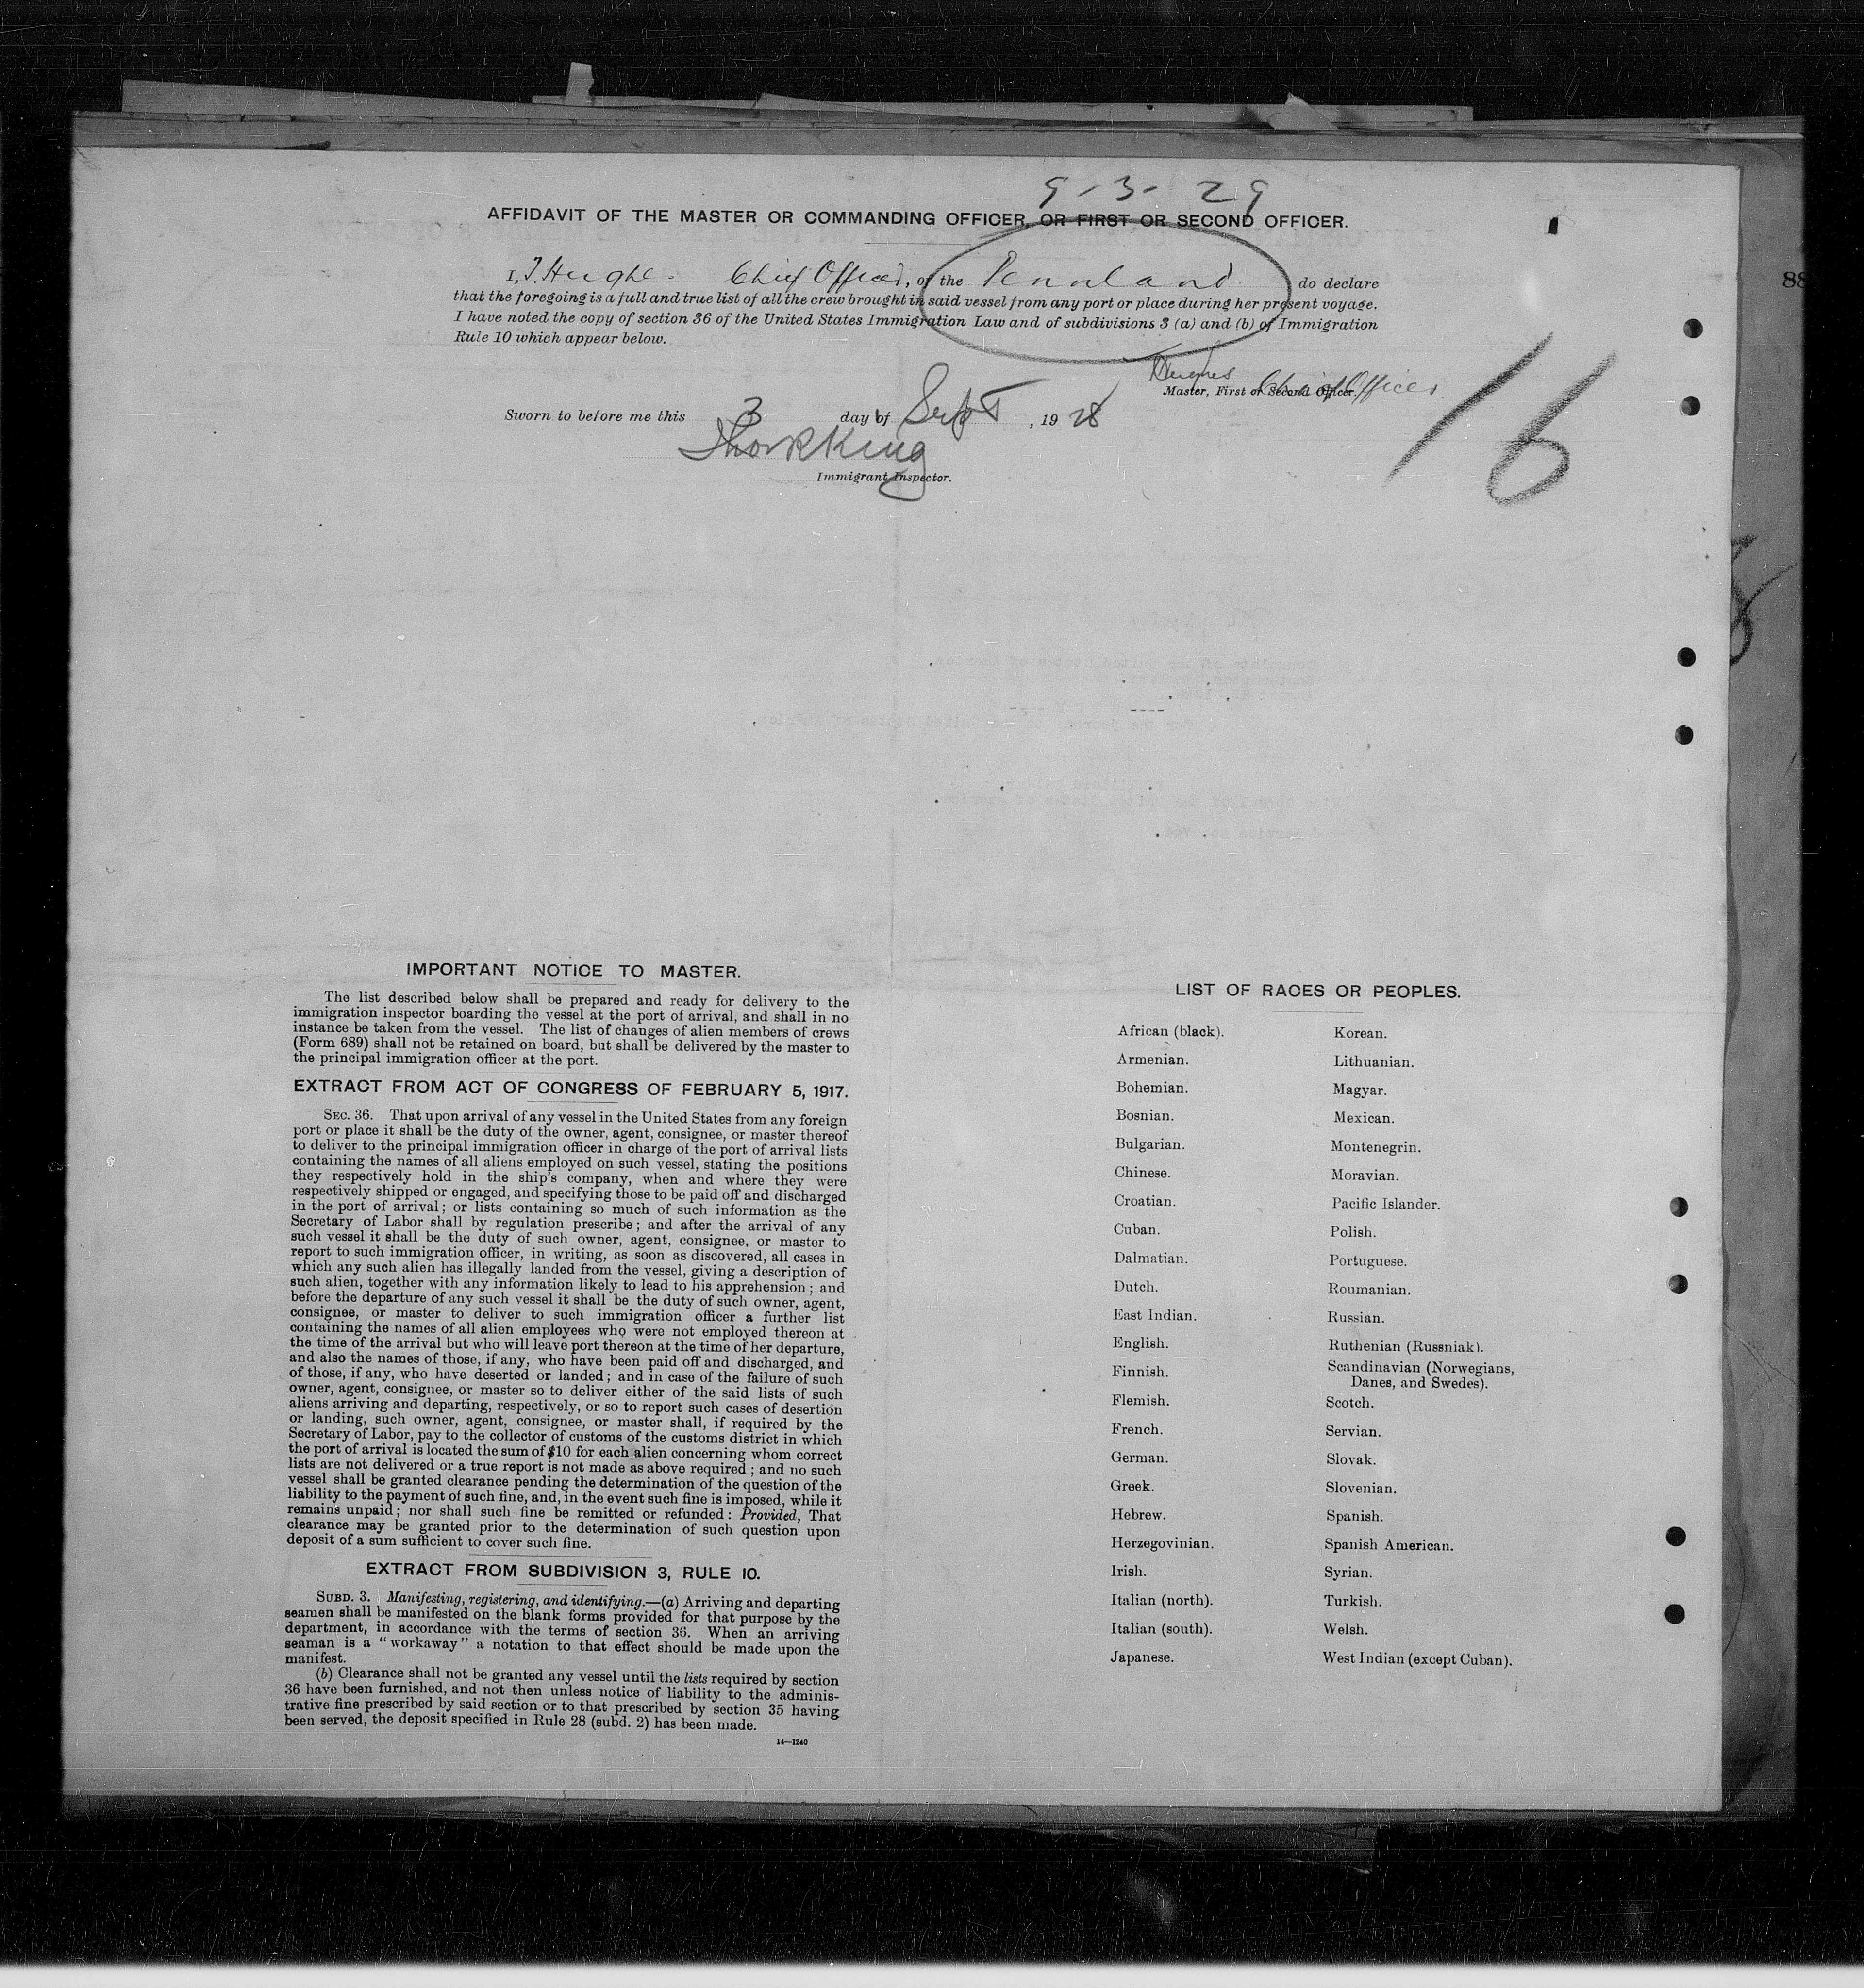 9-3-29
AFFIDAVIT OF THE MASTER OR COMMANDING OFFICER, OR FIRST OR SECOND OFFICER.
I, Chief Officer, of the Pennland do declare
that the foregoing is a full and true list of all the crew brought in said vessel from any port or place during her present voyage.
I have noted the copy of section 36 of the United States Immigration Law and of subdivisions 3 (a) and (b) of Immigration
Rule 10 which appear below.
Hughes Chief Officer.
Master, First or Second Officer.
Sworn to before me this 3 day of Sept, 1928
King
Immigrant Inspector.
16
88
IMPORTANT NOTICE TO MASTER.
The list described below shall be prepared and ready for delivery to the
immigration inspector boarding the vessel at the port of arrival, and shall in no
instance be taken from the vessel. The list of changes of alien members of crews
(Form 689) shall not be retained on board, but shall be delivered by the master to
the principal immigration officer at the port.
EXTRACT FROM ACT OF CONGRESS OF FEBRUARY 5, 1917.
SEC. 36. That upon arrival of any vessel in the United States from any foreign
port or place it shall be the duty of the owner, agent, consignee, or master thereof
to deliver to the principal immigration officer in charge of the port of arrival lists
containing the names of all aliens employed on such vessel, stating the positions
they respectively hold in the ship's company, when and where they were
respectively shipped or engaged, and specifying those to be paid off and discharged
in the port of arrival; or lists containing so much of such information as the
Secretary of Labor shall by regulation prescribe; and after the arrival of any
such vessel it shall be the duty of such owner, agent, consignee, or master to
report to such immigration officer, in writing, as soon as discovered, all cases in
which any such alien has illegally landed from the vessel, giving a description of
such alien, together with any information likely to lead to his apprehension; and
before the departure of any such vessel it shall be the duty of such owner, agent,
consignee, or master to deliver to such immigration officer a further list
containing the names of all alien employees who were not employed thereon at
the time of the arrival but who will leave port thereon at the time of her departure,
and also the names of those, if any, who have been paid off and discharged, and
of those, if any, who have deserted or landed; and in case of the failure of such
owner, agent, consignee, or master so to deliver either of the said lists of such
aliens arriving and departing, respectively, or so to report such cases of desertion
or landing, such owner, agent, consignee, or master shall, if required by the
Secretary of Labor, pay to the collector of customs of the customs district in which
the port of arrival is located the sum of $10 for each alien concerning whom correct
lists are not delivered or a true report is not made as above required; and no such
vessel shall be granted clearance pending the determination of the question of the
liability to the payment of such fine, and, in the event such fine is imposed, while it
remains unpaid; nor shall such fine be remitted or refunded: Provided, That
clearance may be granted prior to the determination of such question upon
deposit of a sum sufficient to cover such fine.
EXTRACT FROM SUBDIVISION 3, RULE 10.
SUBD. 3. Manifesting, registering, and identifying.—(a) Arriving and departing
seamen shall be manifested on the blank forms provided for that purpose by the
department, in accordance with the terms of section 36. When an arriving
seaman is a "workaway" a notation to that effect should be made upon the
manifest.
(b) Clearance shall not be granted any vessel until the lists required by section
36 have been furnished, and not then unless notice of liability to the adminis-
trative fine prescribed by said section or to that prescribed by section 35 having
been served, the deposit specified in Rule 28 (subd. 2) has been made.
14—1240
LIST OF RACES OR PEOPLES.
African (black).
Armenian.
Bohemian.
Bosnian.
Bulgarian.
Chinese.
Croatian.
Cuban.
Dalmatian.
Dutch.
East Indian.
English.
Finnish.
Flemish.
French.
German.
Greek.
Hebrew.
Herzegovinian.
Irish.
Italian (north).
Italian (south).
Japanese.
Korean.
Lithuanian.
Magyar.
Mexican.
Montenegrin.
Moravian.
Pacific Islander.
Polish.
Portuguese.
Roumanian.
Russian.
Ruthenian (Russniak).
Scandinavian (Norwegians,
Danes, and Swedes).
Scotch.
Servian.
Slovak.
Slovenian.
Spanish.
Spanish American.
Syrian.
Turkish.
Welsh.
West Indian (except Cuban).